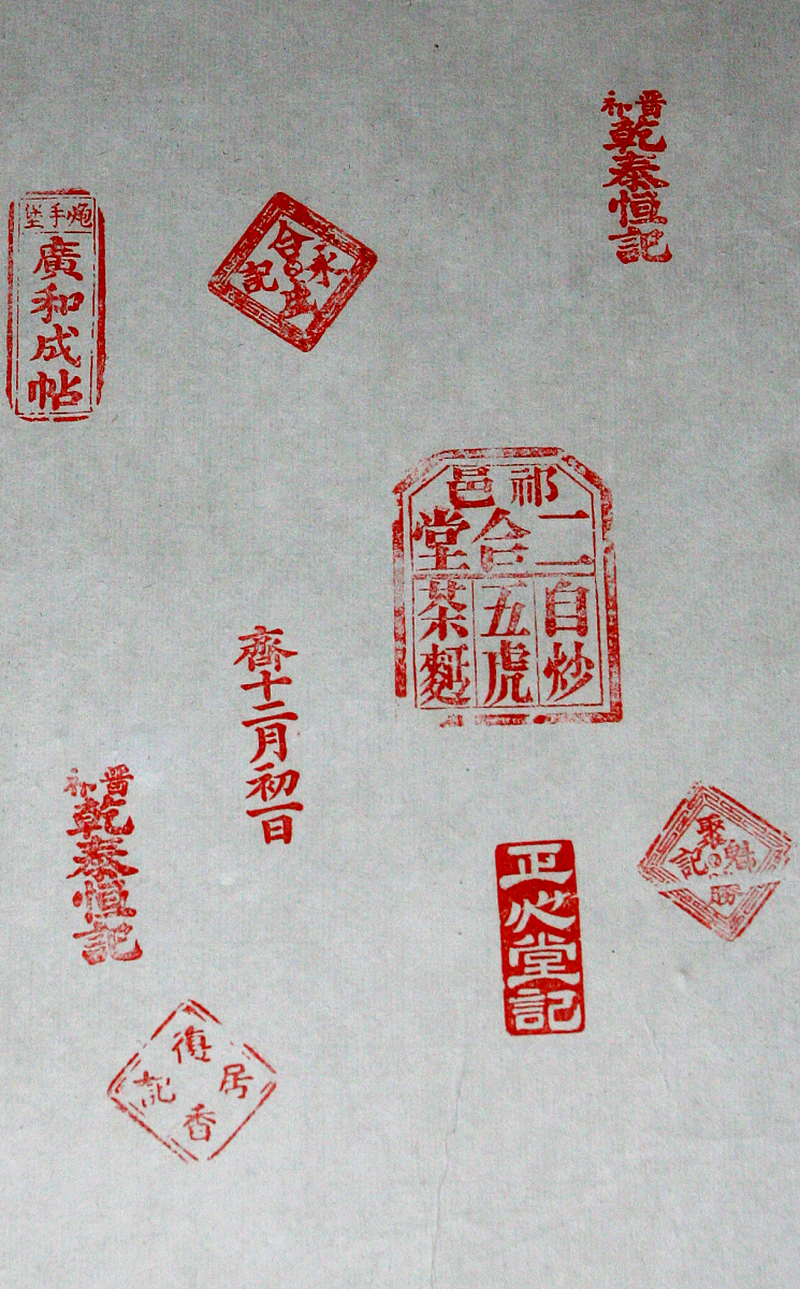 晋祁
乾泰恒記
炮手堡
廣和成帖
永
合
記
祁邑
二合堂
自炒
五虎
茶麵
齊十二月初一日
晋祁
乾泰恒記
聚
魁
勝
記
正心堂記
復
居
香
記